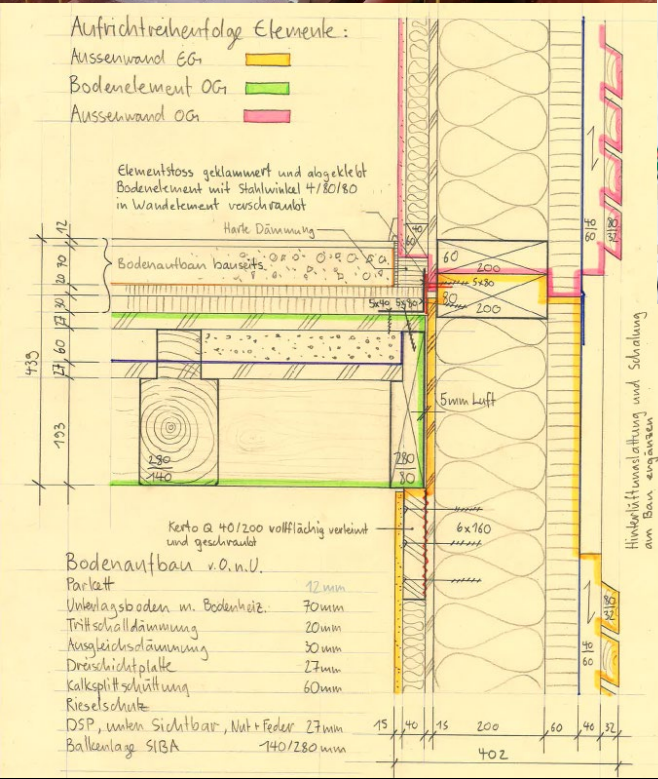 Aufrichtreihenfolge Elemente:
Aussenwand EG
Bodenelement OG
Aussenwand OG
Elementstoss geklammert und abgeklebt
Bodenelement mit Stahlwinkel 4/80/80
in Wandelement verschraubt
Harte Dämmung
Bodenaufbau bauseits
12
70
20
30
27
60
27
193
439
40
60
60
200
5x80
80
200
5x40 5x80
40
60
80
32
5mm Luft
280
140
280
80
6x160
Kerto Q 40/200 vollflächig verleimt
und geschraubt
Hinterlüftungslattung und Schalung
am Bau ergänzen
40
60
80
32
Bodenaufbau v.O.n.U.
Parkett 12mm
Unterlagsboden m. Bodenheiz. 70mm
Trittschalldämmung 20mm
Ausgleichsdämmung 30mm
Dreischichtplatte 27mm
Kalksplittschüttung 60mm
Rieselschutz
DSP, unten Sichtbar, Nut+Feder 27mm
Balkenlage SIBA 140/280mm
15 40 15 200 60 40 32
402